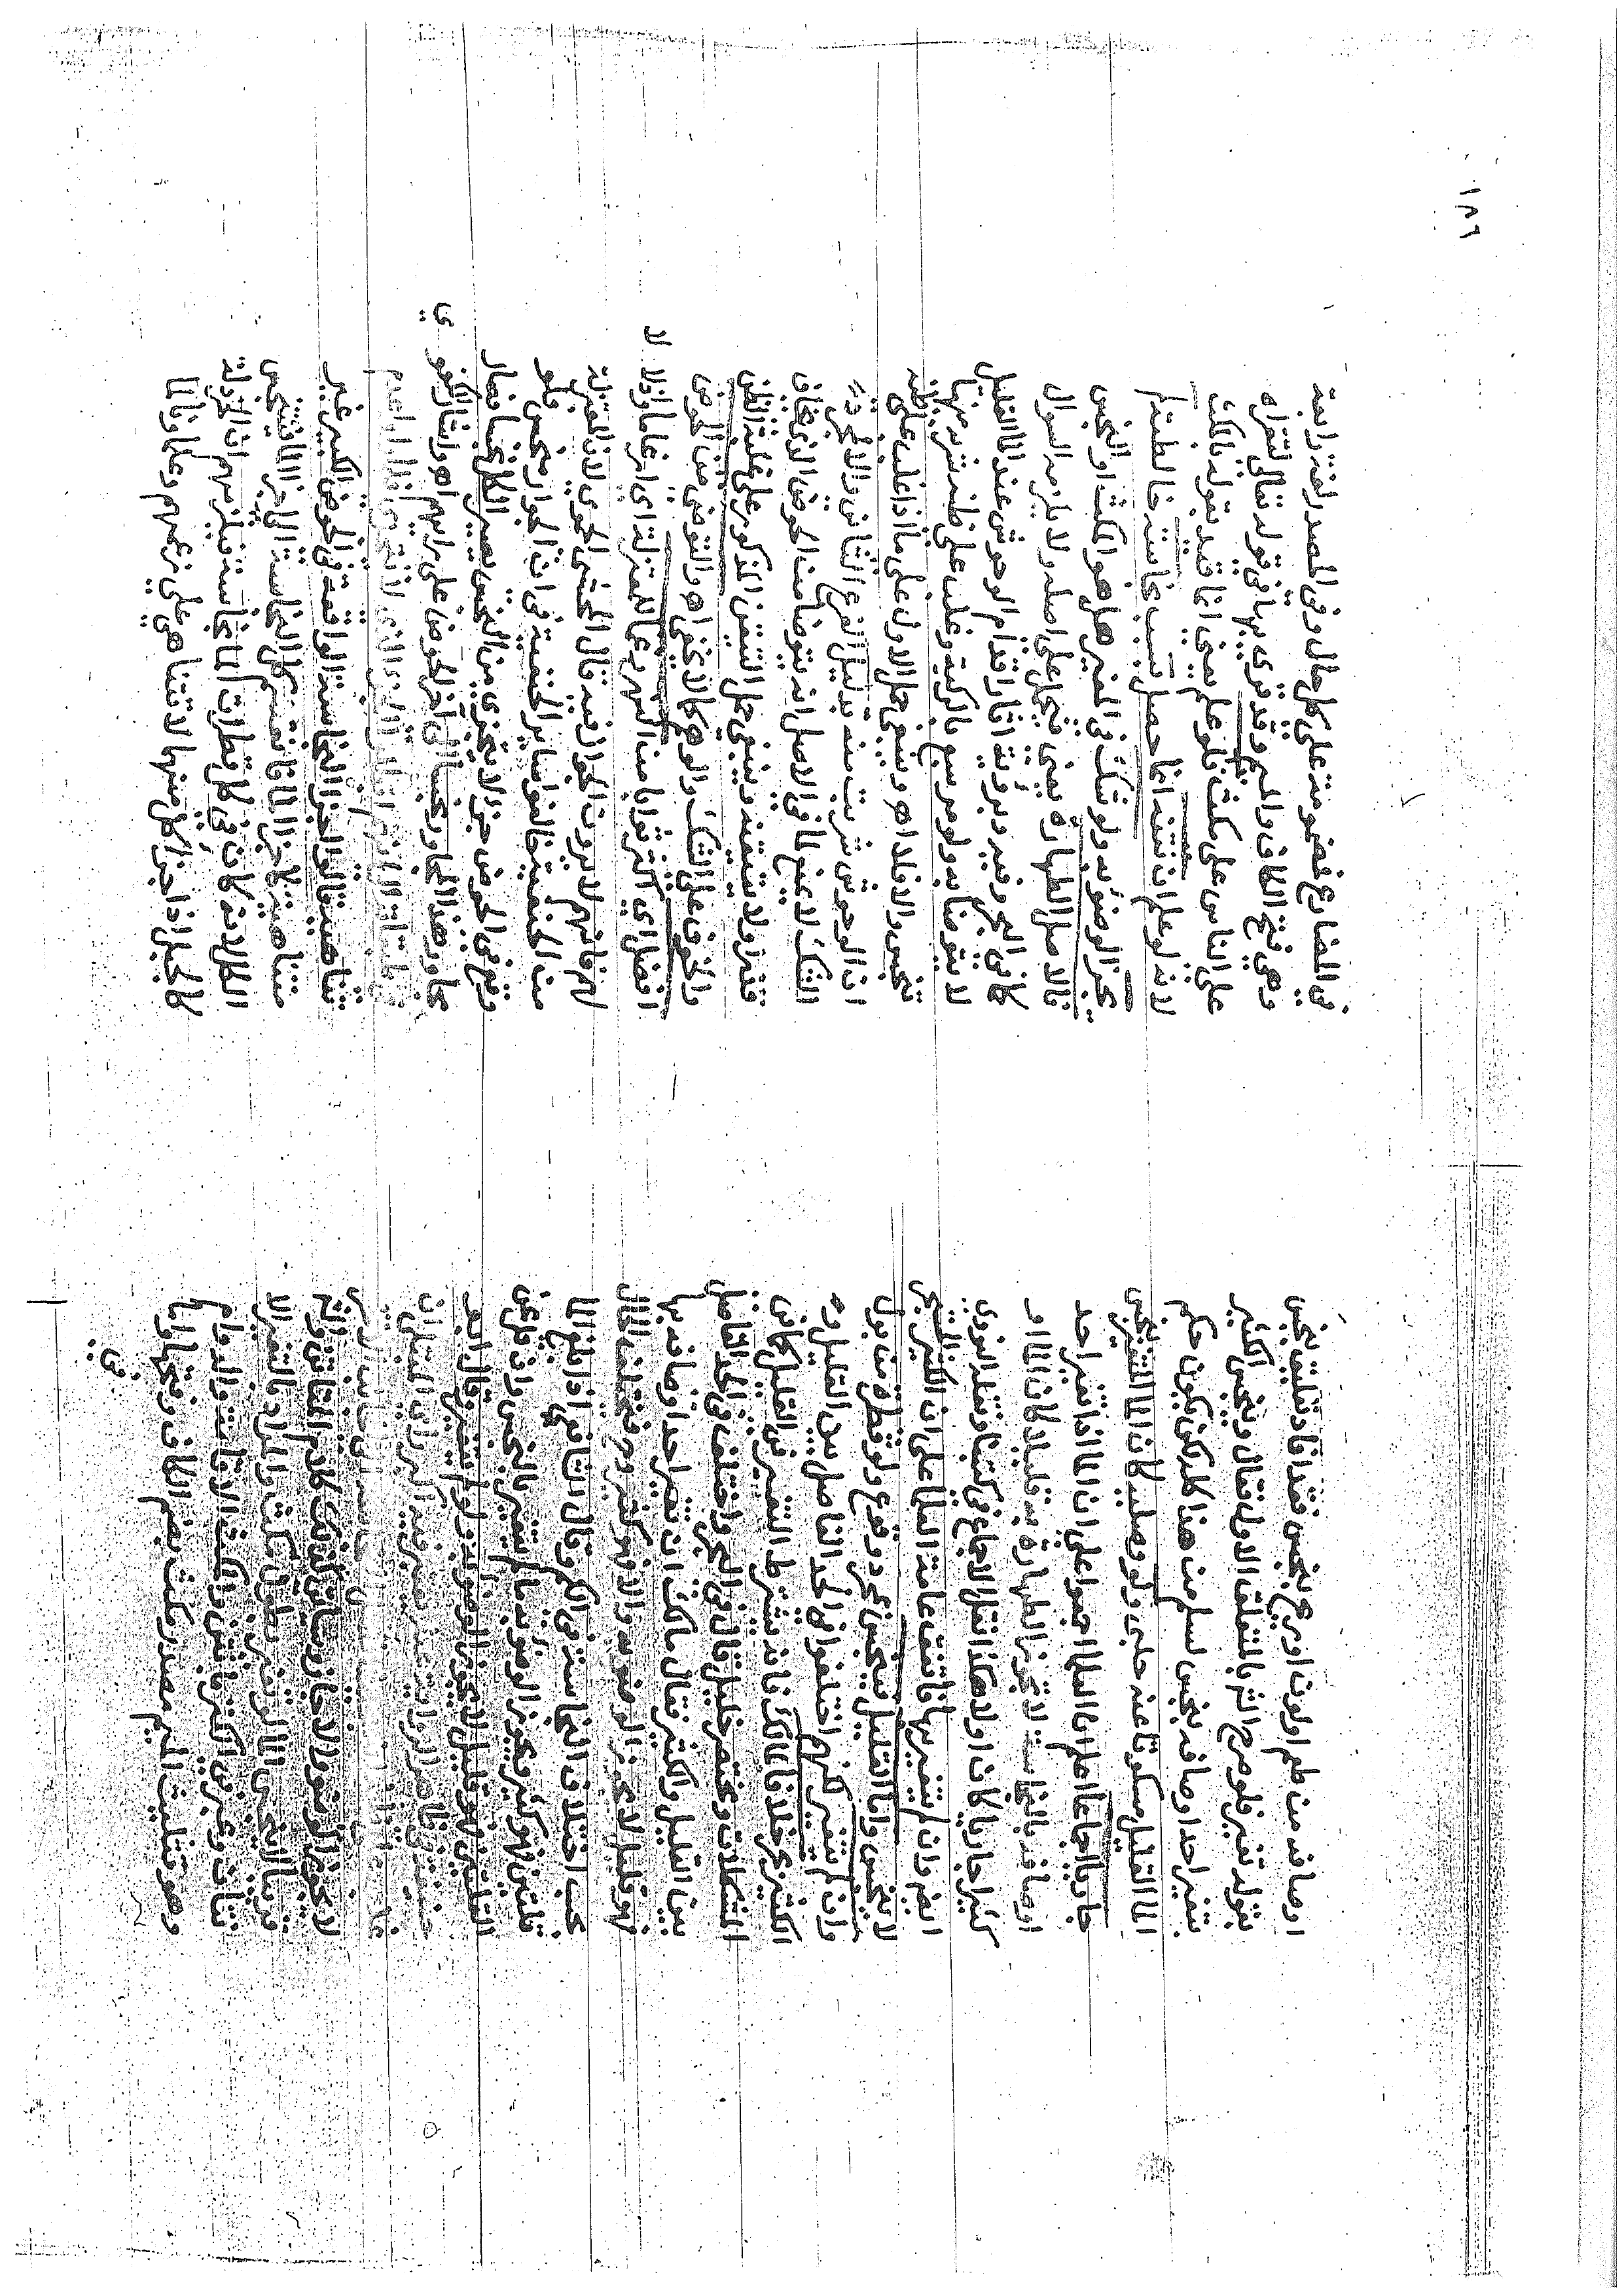 ١٨٩
اوصافه من طعم او لون او ريح بنجس فقد افاد تعليق بنجس
بقوله تغير فلو صرح الشم بالمتعلق الاول فقال وينجس الكثير
بتغير احد اوصافه بنجس لسلم من هذا كله لكن يكون حكم
الماء القليل مسكوتا عنه حلبى ولو وصلية كان الماء المتغير بنجس
جاريا اجماعا اعلم ان العلماء اجمعوا على ان الماء اذا تغير احد
اوصافه بالنجاسة لا تجوز الطهارة به قليلا كان الماء او
كثيرا جاريا كان او لا هكذا نقل الاجماع في كتبنا ونقله النووي
ايضا وان لم يتغير بها فاتفق عامة العلماء على ان الكثير الجاري
لا ينجس واما القليل فينجس بمجرد وقوع ولو قطرة من بول
وان لم يتغير لكنهم اختلفوا في الحد الفاصل بين القليل و
الكثير بحر خلافا لمالك فانه يشترط التغير في القليل كما في
المشكلات ومختصر خليل قال في البحر واختلف في الحد الفاصل
بين القليل والكثير فقال مالك ان تغير احد اوصافه بها
فهو قليل لا يجوز الوضوء به والا فهو كثير وح يختلف الحال
بحسب اختلاف النجاسة في الكم وقال الشافعي اذا بلغ الماء
قلتين فهو كثير فيجوز الوضوء به ما لم يتغير بالنجس وان لم يكن
القلتين فهو قليل لا يجوز الوضوء به ولو لم يتغير وقال ابو
حنيفة في ظاهر الرواية عنه يعتبر فيه اكبر راى المبتلى ان
لا يجوز الوضوء والا جاز وسياتي كذلك كلام الشافتي ولتح
قريبا لا ينجس الماء لو تغير بطول مكث والمراد بالتغير الا
نتان وعبر في الكنز بانتن والمكث الاقامة والدوام
وهو مثلث الميم مصدر مكث بضم الكاف وفتحها واما
في
في المضارع فمضمومة على كل حال وفي المصدر لغة رابعة
وهي فتح الكاف والميم وقد قرئ بها في قوله تعالى لتقراه
على الناس على مكث فلو علم يعني انما قيد بقوله بمكث
لانه لو علم ان نتنه انما حصل بسبب نجاسة خالطته لم
يجز الوضوء به ولو شك في المغير هل هو المكث او النجس
فالاصل الطهارة يعني فيحمل على اصله ولا يلزمه السوال
كما في البحر وغيره وبرؤية اثار اقدام الوحوش عند الماء القليل
لا يتوضا به ولو مر سبع بالركية وغلب على ظنه شربه منها
تنجس والا فلا اه وينبغي حمل الاول على ما اذا غلب على ظنه
ان الوحوش شربت منه بدليل الفرع الثاني والا لمجرد
الشك لا يمنع لما في الاصل انه يتوضا من الحوض الذي يخاف
قذرا ولا يتيقنه وينبغي حمل التيقن المذكور على غلبة الظن
والخوف على الشك او الوهم كما لا يخفى اه والتوضى من الحوض
افضل اي اكثر ثوابا من النهر رغما للمعتزلة اي ارغاما واذلالا
لهم فانهم لا يرون الجواز فيه قال المحشى الحموى لان المعتزلة
من الحنفية خالفوا سائر الحنفية في ان الجوار ينجس فلو
وقع في الحوض جزء لا يتجزى من النجس يصير الكل نجسا فصار
مجاورا وهذا المجاور نجسا الى اخر الحوض على رايهم اه واشار الكفوى
تناهية قالوا الجزء النجاسة الواقعة في الحوض الكبير غير
متناهية كاجزاء الماء فتقسم كل النجاسة الى اجزاء الماء فيتنجس
الكل لانه كان في كل قطرات الماء نجاسة فيلزمهم ان الخردلة
كالجبل اذ اجزاء كل منها لا تتناهى على زعمهم وعلماؤنا لما